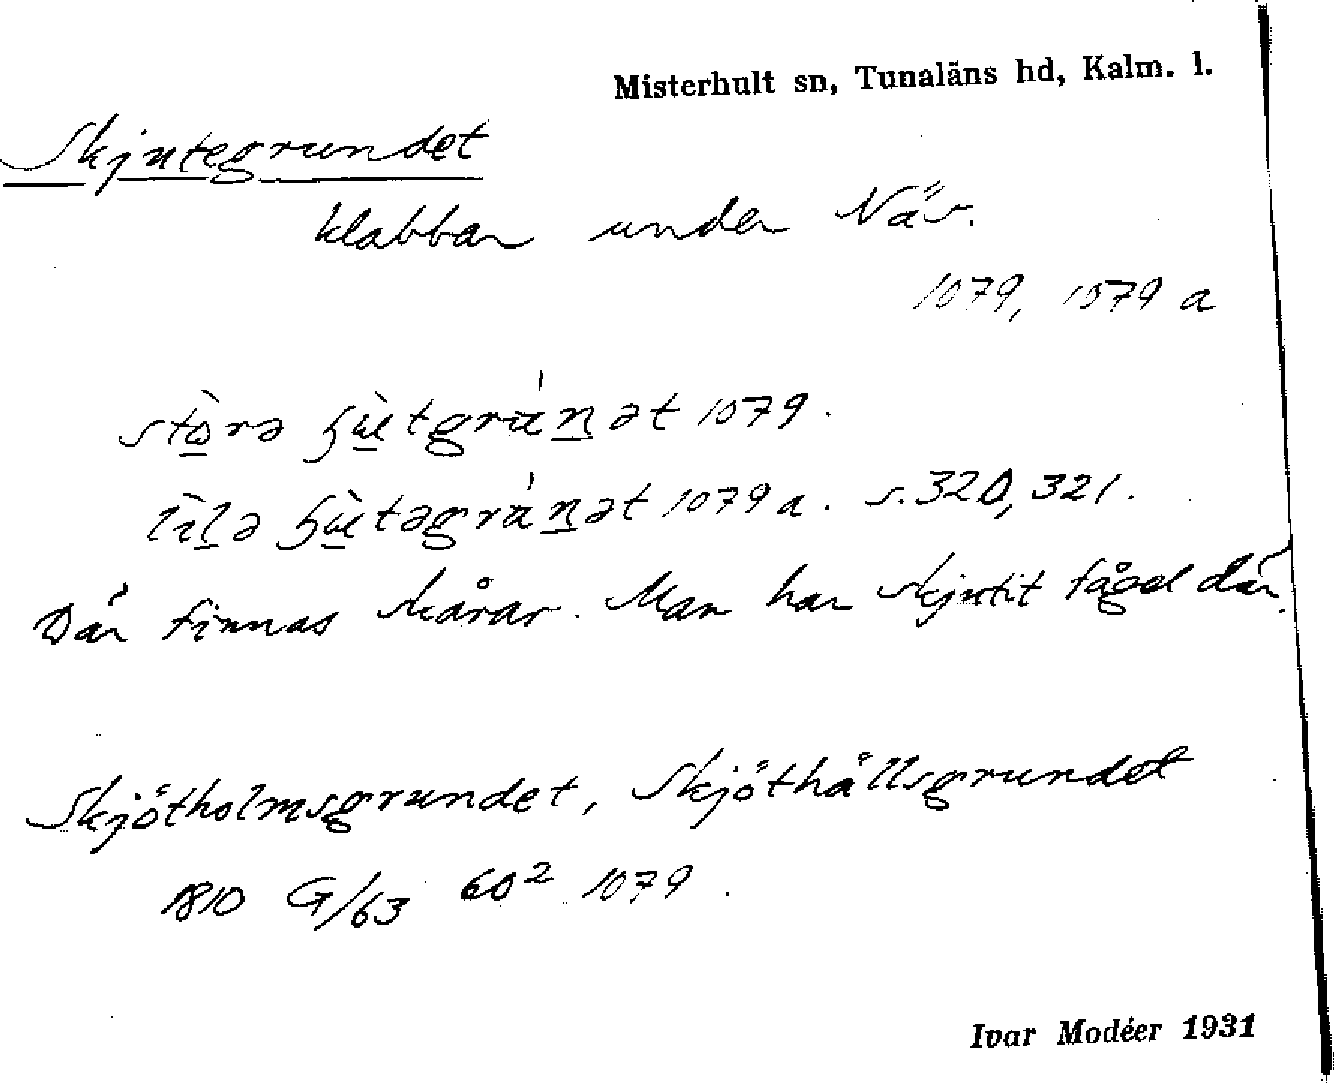 Misterhult sn, Tunaläns hd, Kalm. l.
Skjutegrundet
klabbar under Näs.
1079, 1079 a
1079.
1079 a. s. 320, 321.
Där finnas skårar. Man har skjutit fågel där.
Skjötholmsgrundet, Skjöthällsgrundet
1810 G/63 60² 1079.
Ivar Modéer 1931